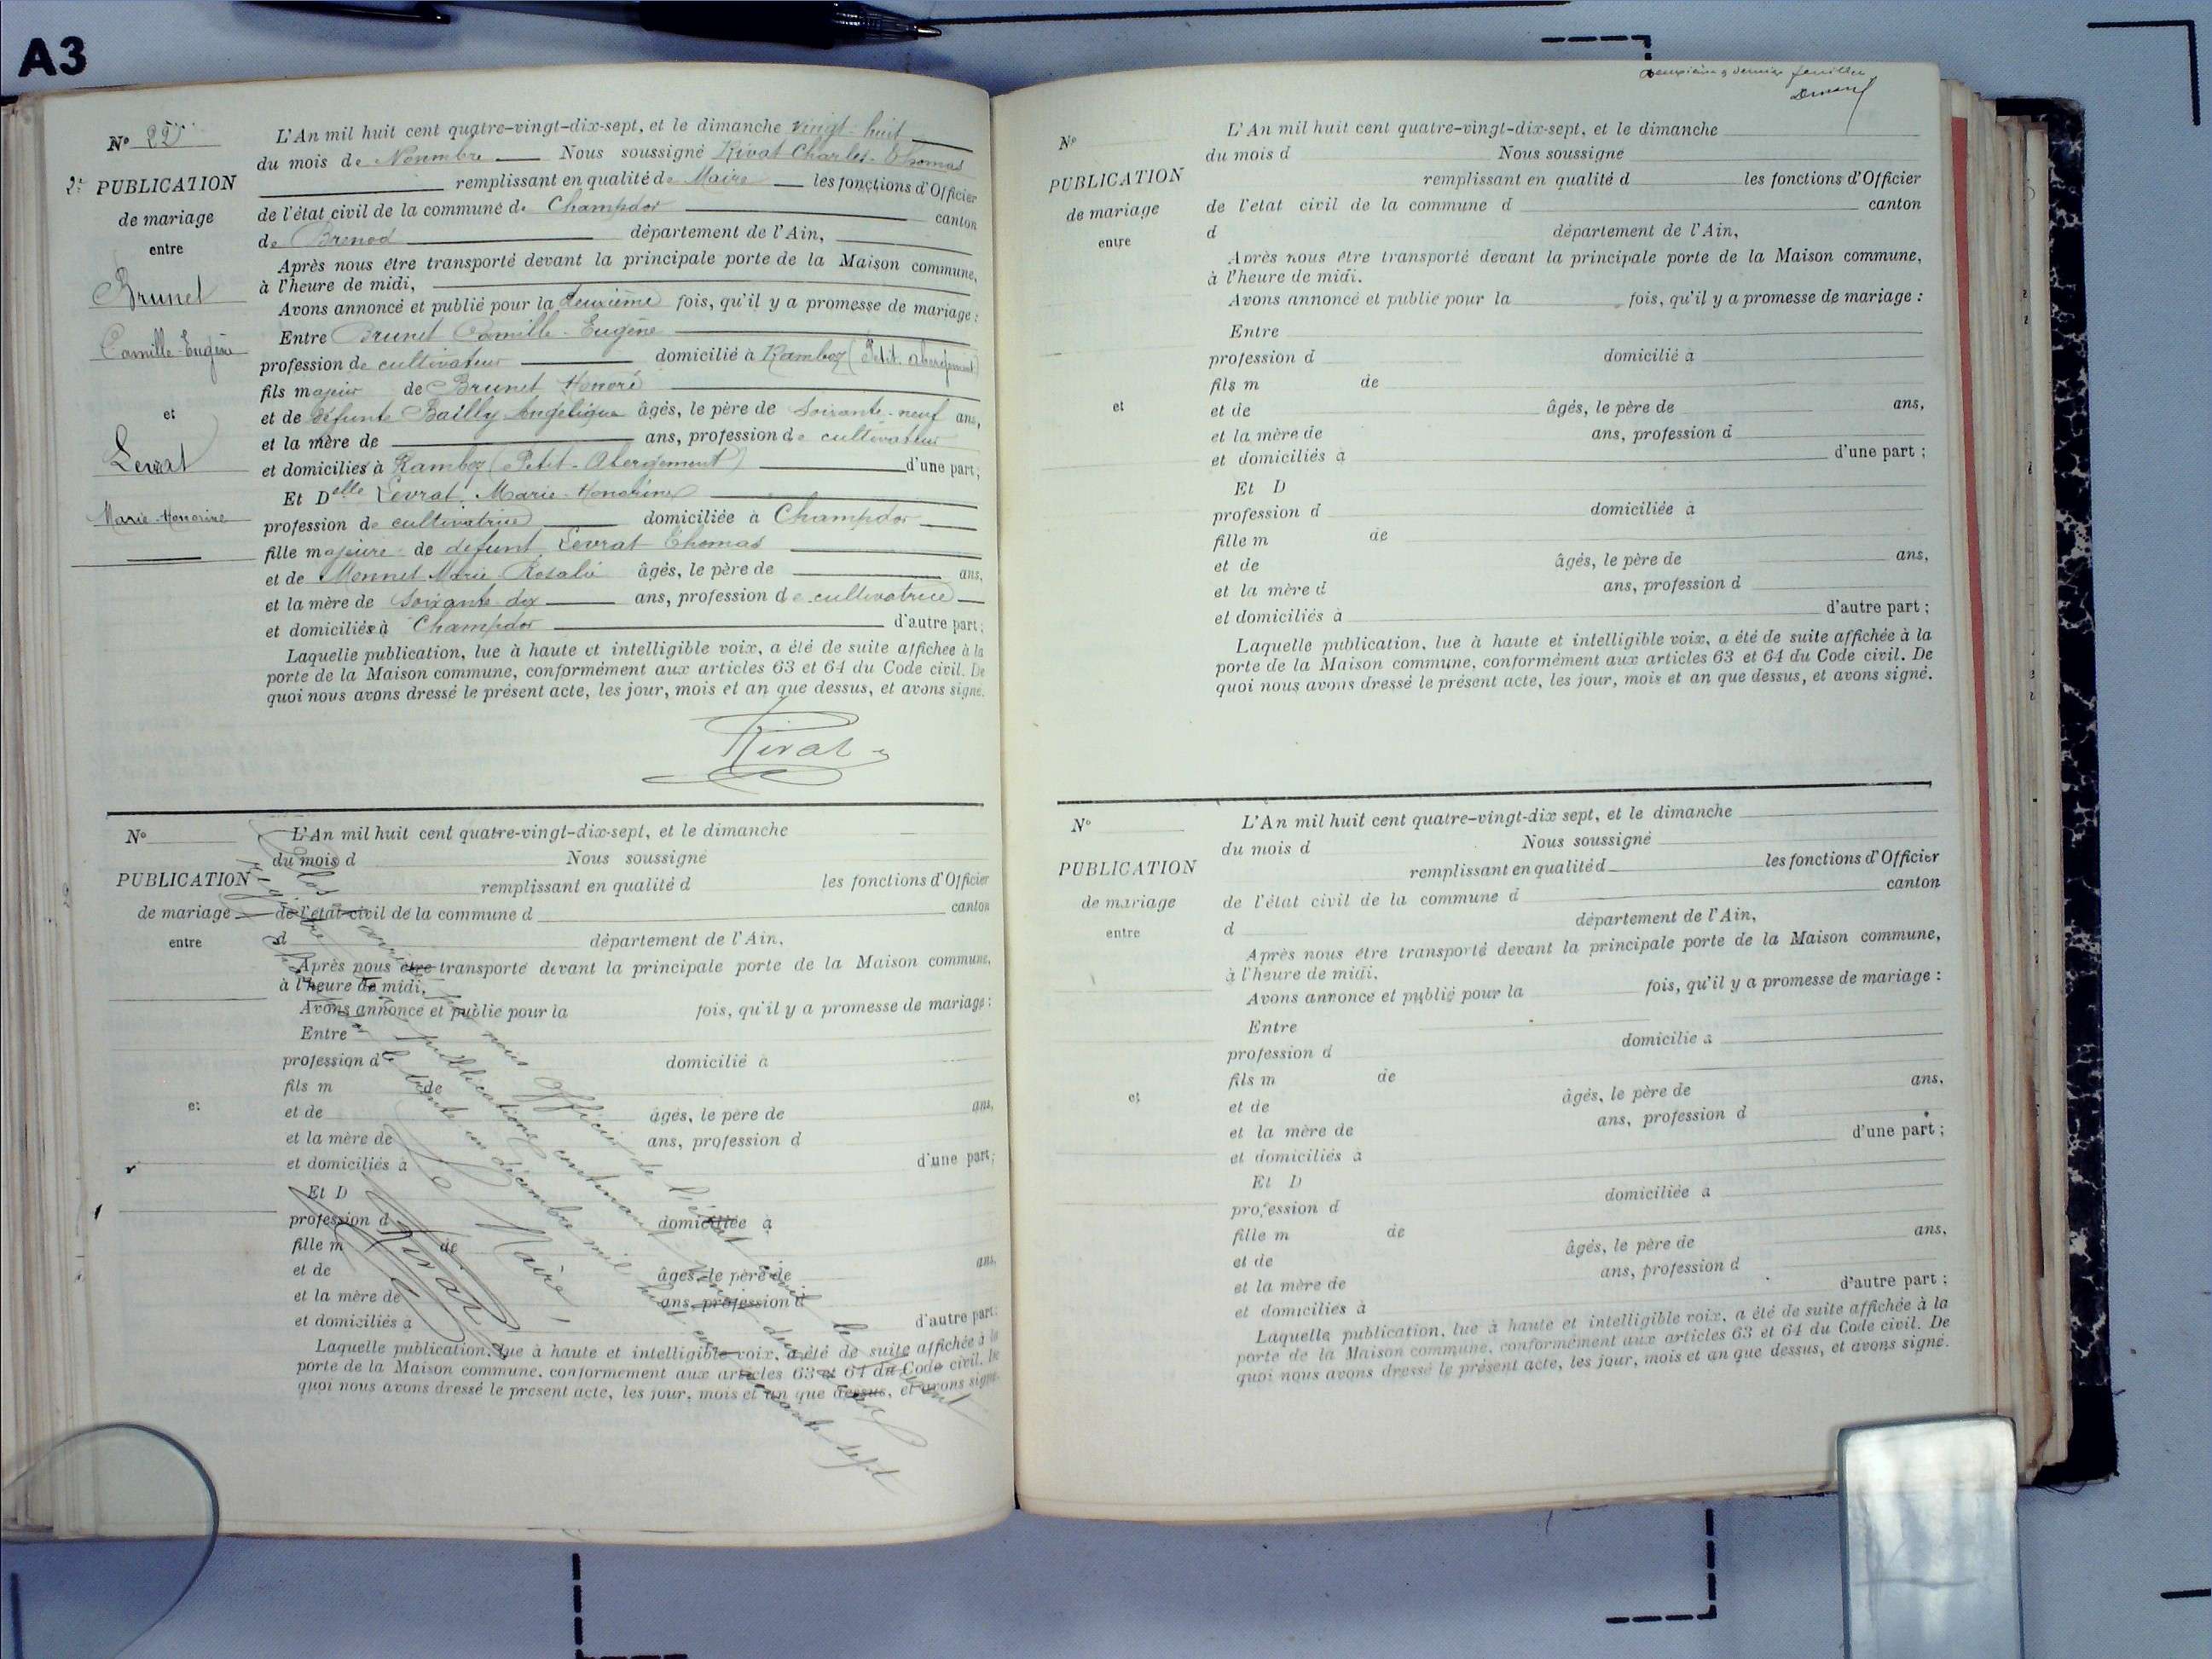 A3
N° 22
2e PUBLICATION
de mariage
entre
Brunet
Camille-Eugène
et
Levrat
Marie-Honorine
L'An mil huit cent quatre-vingt-dix-sept, et le dimanche vingt-huit
du mois de Novembre Nous soussigné Rivat Charles-Thomas
remplissant en qualité de Maire les fonctions d'Officier
de l'état civil de la commune de Champdor canton
de Brenod département de l'Ain,
Après nous être transporté devant la principale porte de la Maison commune,
à l'heure de midi,
Avons annoncé et publié pour la deuxième fois, qu'il y a promesse de mariage :
Entre Brunet Camille-Eugène
profession de cultivateur domicilié à Ramboz (Petit-Abergement)
fils majeur de Brunet Honoré
et de défunte Bailly Angélique âgés, le père de soixante-neuf ans,
et la mère de ans, profession de cultivateur
et domiciliés à Ramboz (Petit-Abergement) d'une part ;
Et Delle Levrat Marie-Honorine
profession de cultivatrice domiciliée à Champdor
fille majeure de défunt Levrat Thomas
et de Monnet Marie Rosalie âgés, le père de ans,
et la mère de soixante-dix ans, profession de cultivatrice
et domiciliés à Champdor d'autre part ;
Laquelle publication, lue à haute et intelligible voix, a été de suite affichée à la
porte de la Maison commune, conformément aux articles 63 et 64 du Code civil. De
quoi nous avons dressé le présent acte, les jour, mois et an que dessus, et avons signé.
Rivat
N°
PUBLICATION
de mariage
entre
et
L'An mil huit cent quatre-vingt-dix-sept, et le dimanche
du mois d Nous soussigné
remplissant en qualité d les fonctions d'Officier
de l'état civil de la commune d canton
d département de l'Ain,
Après nous être transporté devant la principale porte de la Maison commune,
à l'heure de midi,
Avons annoncé et publié pour la fois, qu'il y a promesse de mariage :
Entre
profession d domicilié à
fils m de
et de âgés, le père de ans,
et la mère de ans, profession d
et domiciliés à d'une part ;
Et D
profession d domiciliée à
fille m de
et de âgés, le père de ans,
et la mère de ans, profession d
et domiciliés à d'autre part ;
Laquelle publication, lue à haute et intelligible voix, a été de suite affichée à la
porte de la Maison commune, conformément aux articles 63 et 64 du Code civil. De
quoi nous avons dressé le présent acte, les jour, mois et an que dessus, et avons signé.
Clos arrêté par nous Officier de l'état civil le présent
registre de publications contenant vingt deux actes
le trente un décembre mil huit cent nonante sept
Le Maire
Rivat
deuxième & dernier feuillet
N°
PUBLICATION
de mariage
entre
et
L'An mil huit cent quatre-vingt-dix-sept, et le dimanche
du mois d Nous soussigné
remplissant en qualité d les fonctions d'Officier
de l'état civil de la commune d canton
d département de l'Ain,
Après nous être transporté devant la principale porte de la Maison commune,
à l'heure de midi.
Avons annoncé et publié pour la fois, qu'il y a promesse de mariage :
Entre
profession d domicilié à
fils m de
et de âgés, le père de ans,
et la mère de ans, profession d
et domiciliés à d'une part ;
Et D
profession d domiciliée à
fille m de
et de âgés, le père de ans,
et la mère d ans, profession d
et domiciliés à d'autre part ;
Laquelle publication, lue à haute et intelligible voix, a été de suite affichée à la
porte de la Maison commune, conformément aux articles 63 et 64 du Code civil. De
quoi nous avons dressé le présent acte, les jour, mois et an que dessus, et avons signé.
N°
PUBLICATION
de mariage
entre
et
L'An mil huit cent quatre-vingt-dix sept, et le dimanche
du mois d Nous soussigné
remplissant en qualité d les fonctions d'Officier
de l'état civil de la commune d canton
d département de l'Ain,
Après nous être transporté devant la principale porte de la Maison commune,
à l'heure de midi,
Avons annoncé et publié pour la fois, qu'il y a promesse de mariage :
Entre
profession d domicilié à
fils m de
et de âgés, le père de ans,
et la mère de ans, profession d
et domiciliés à d'une part ;
Et D
profession d domiciliée à
fille m de
et de âgés, le père de ans,
et la mère de ans, profession d
et domiciliés à d'autre part ;
Laquelle publication, lue à haute et intelligible voix, a été de suite affichée à la
porte de la Maison commune, conformément aux articles 63 et 64 du Code civil. De
quoi nous avons dressé le présent acte, les jour, mois et an que dessus, et avons signé.